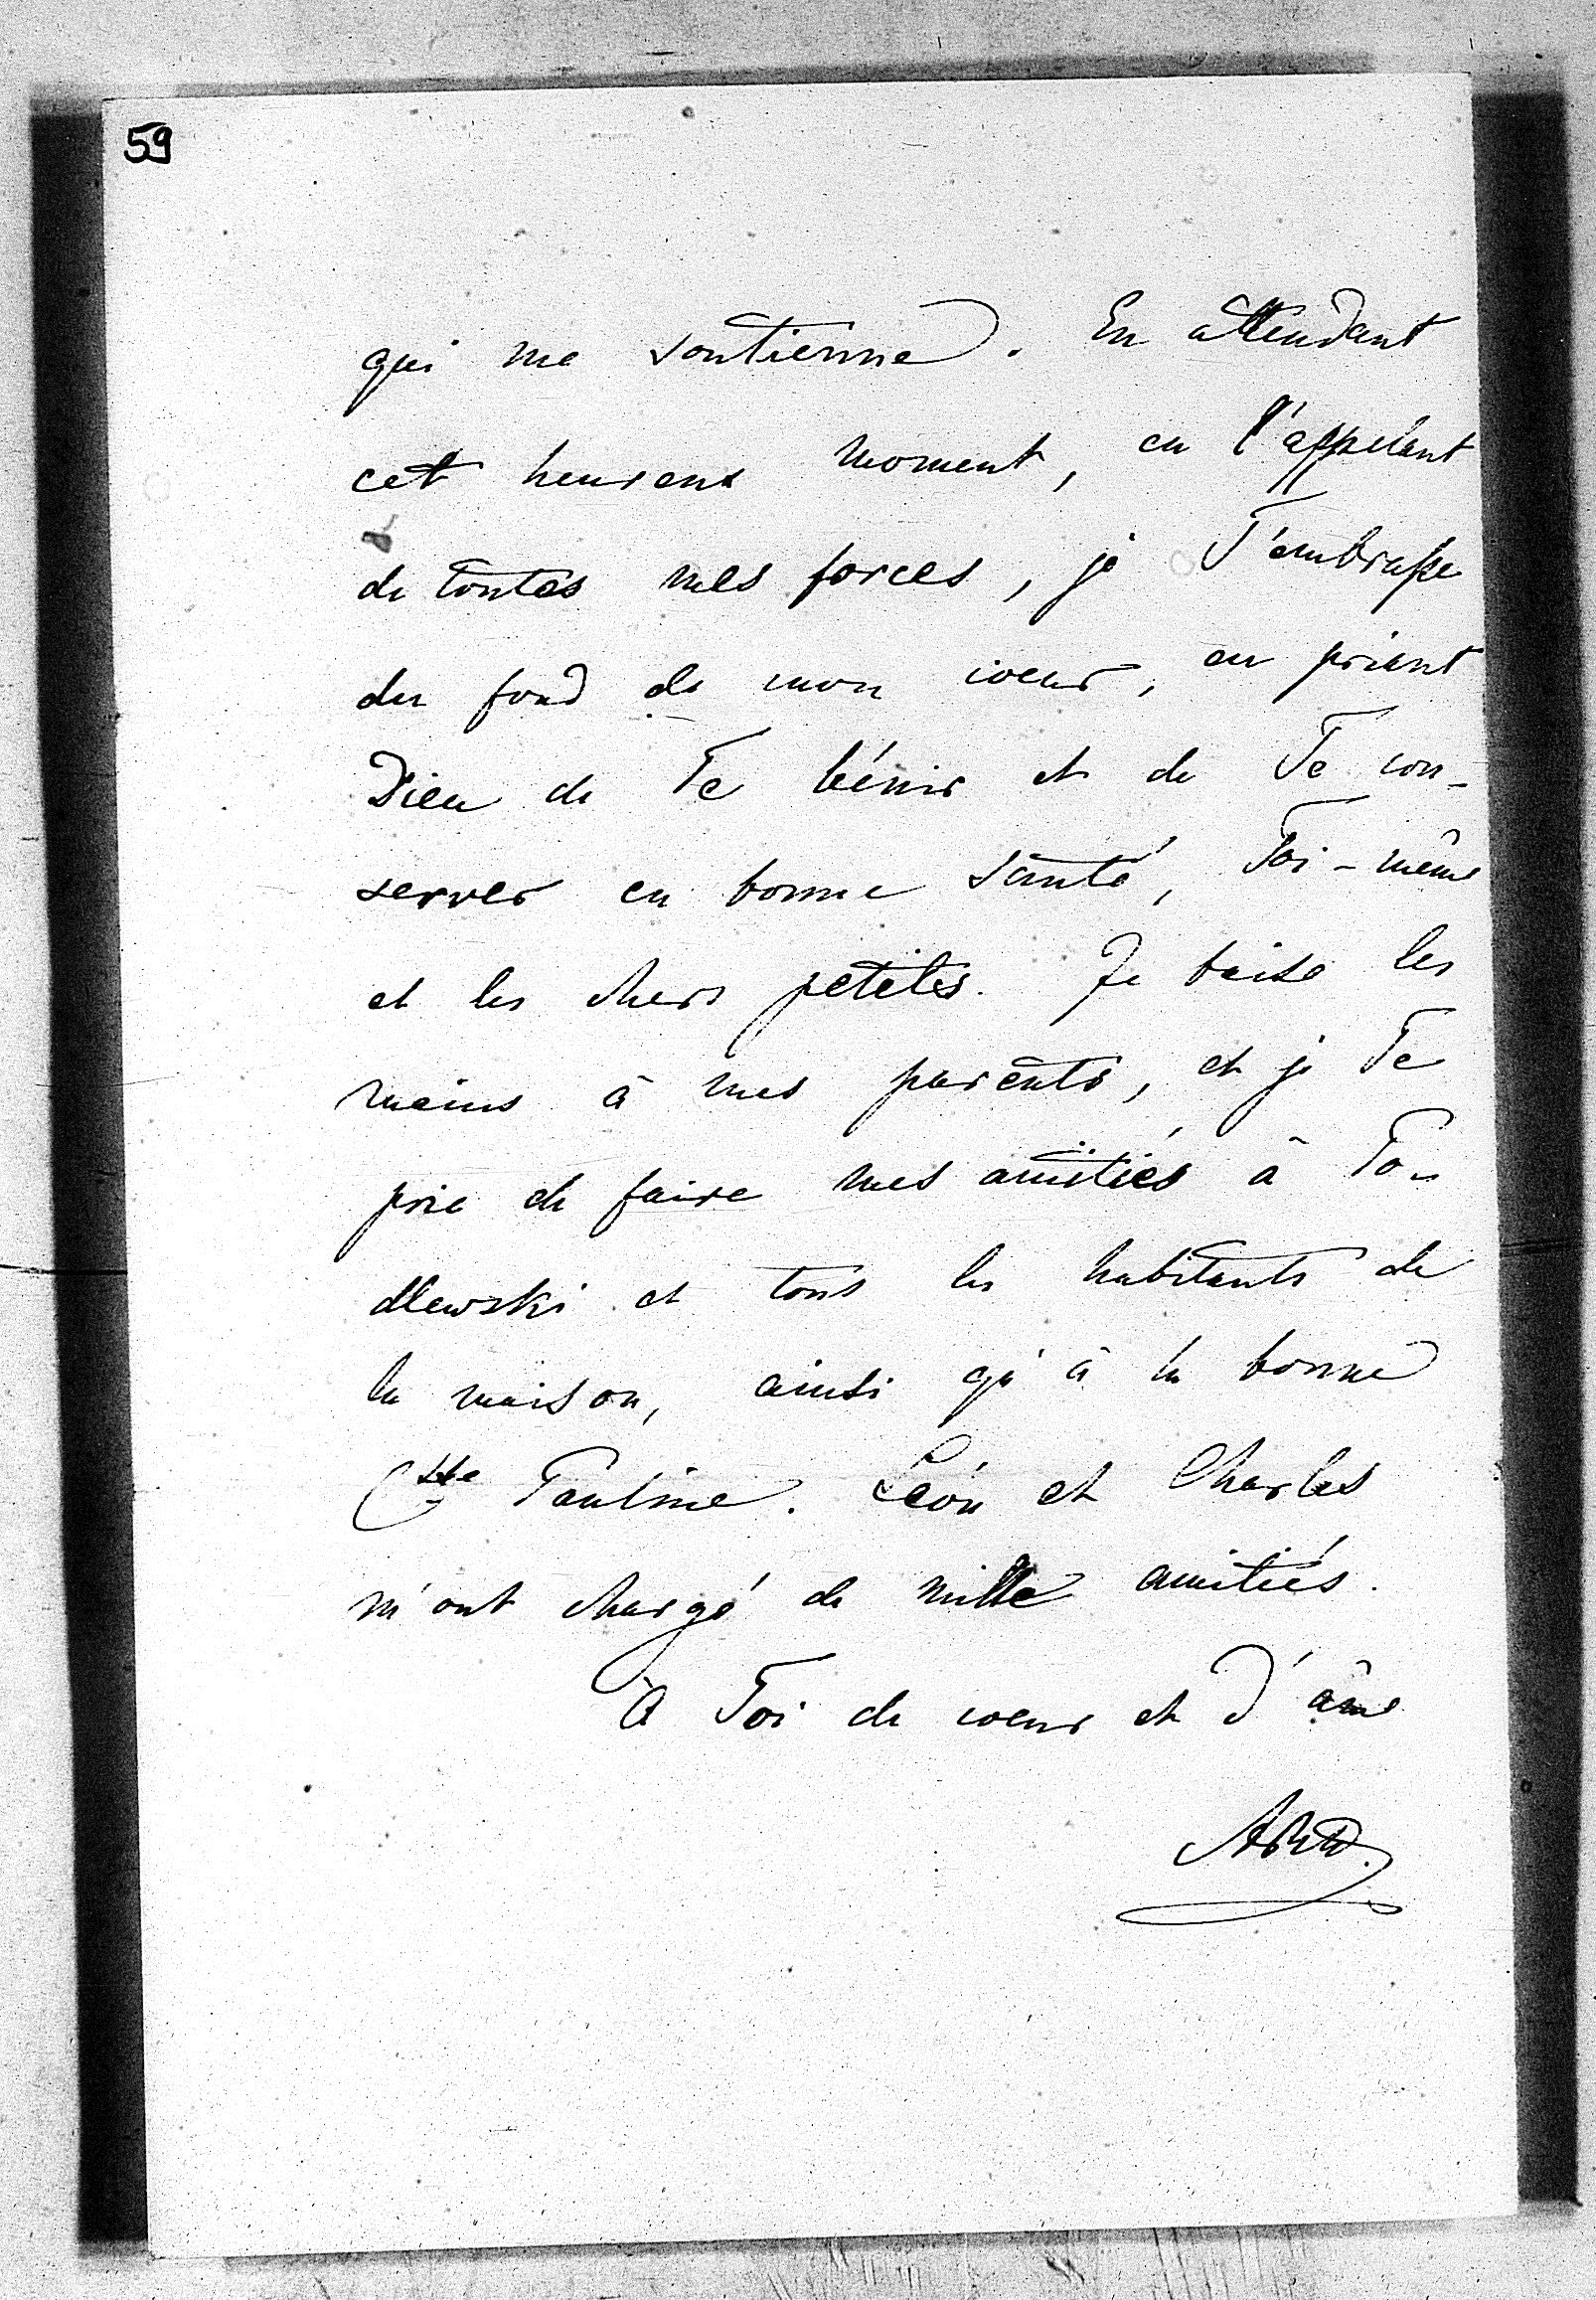 59
qui me soutienne. En attendant
cet heureux moment, en l'appelant
de toutes mes forces, je T'embrasse
du fond de mon coeur, en priant
Dieu de Te bénir et de Te con-
server en bonne santé, Toi-même
et les chers petites. Je baise les
mains à mes parents, et je Te
prie de faire mes amitiés à
et tous les habitants de
la maison, ainsi qu'à la bonne
Ctsse Pauline. Léon et Charles
m'ont chargé de mille amitiés.
À Toi de coeur et d'âme